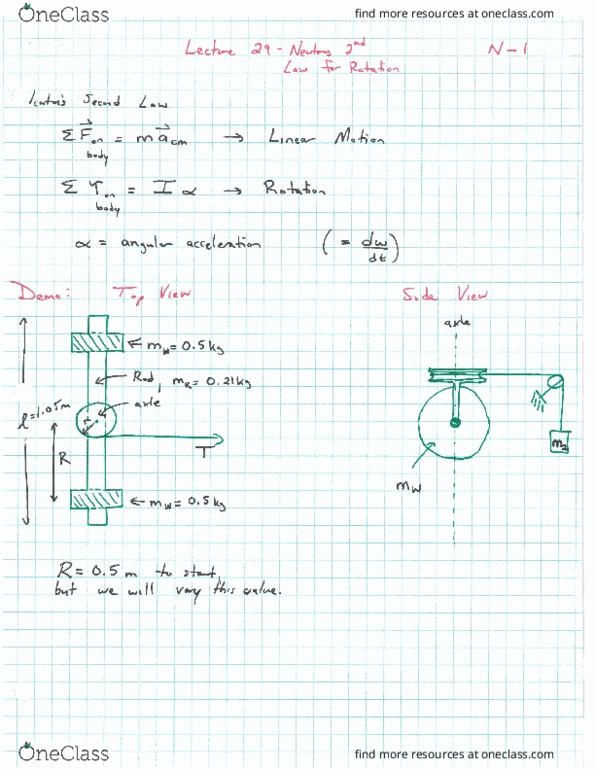 OneClass
find more resources at oneclass.com
Lecture 29 - Newtons 2nd
Law for Rotation
N-1
Newton's Second Law
Σ F⃗on body = m a⃗cm → Linear Motion
Σ τon body = I α → Rotation
α = angular acceleration ( = dω/dt )
Demo: Top View
Side View
axle
← mw = 0.5 kg
Rod, mR = 0.21 kg
axle
l = 1.05 m
r
R
T
← mw = 0.5 kg
m2
mw
R = 0.5 m to start,
but we will vary this value.
OneClass
find more resources at oneclass.com